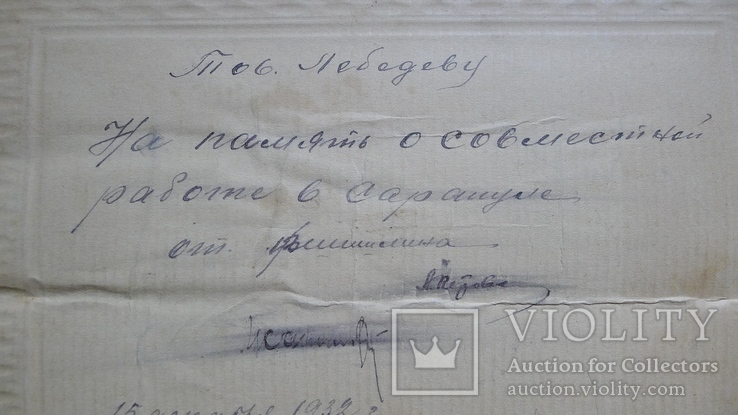 Тов. Лебедеву
На память о совместной
работе в Сарапуле
от
М. Петрова
15 1932 г.
VIOLITY
Auction for Collectors
auction.violity.com